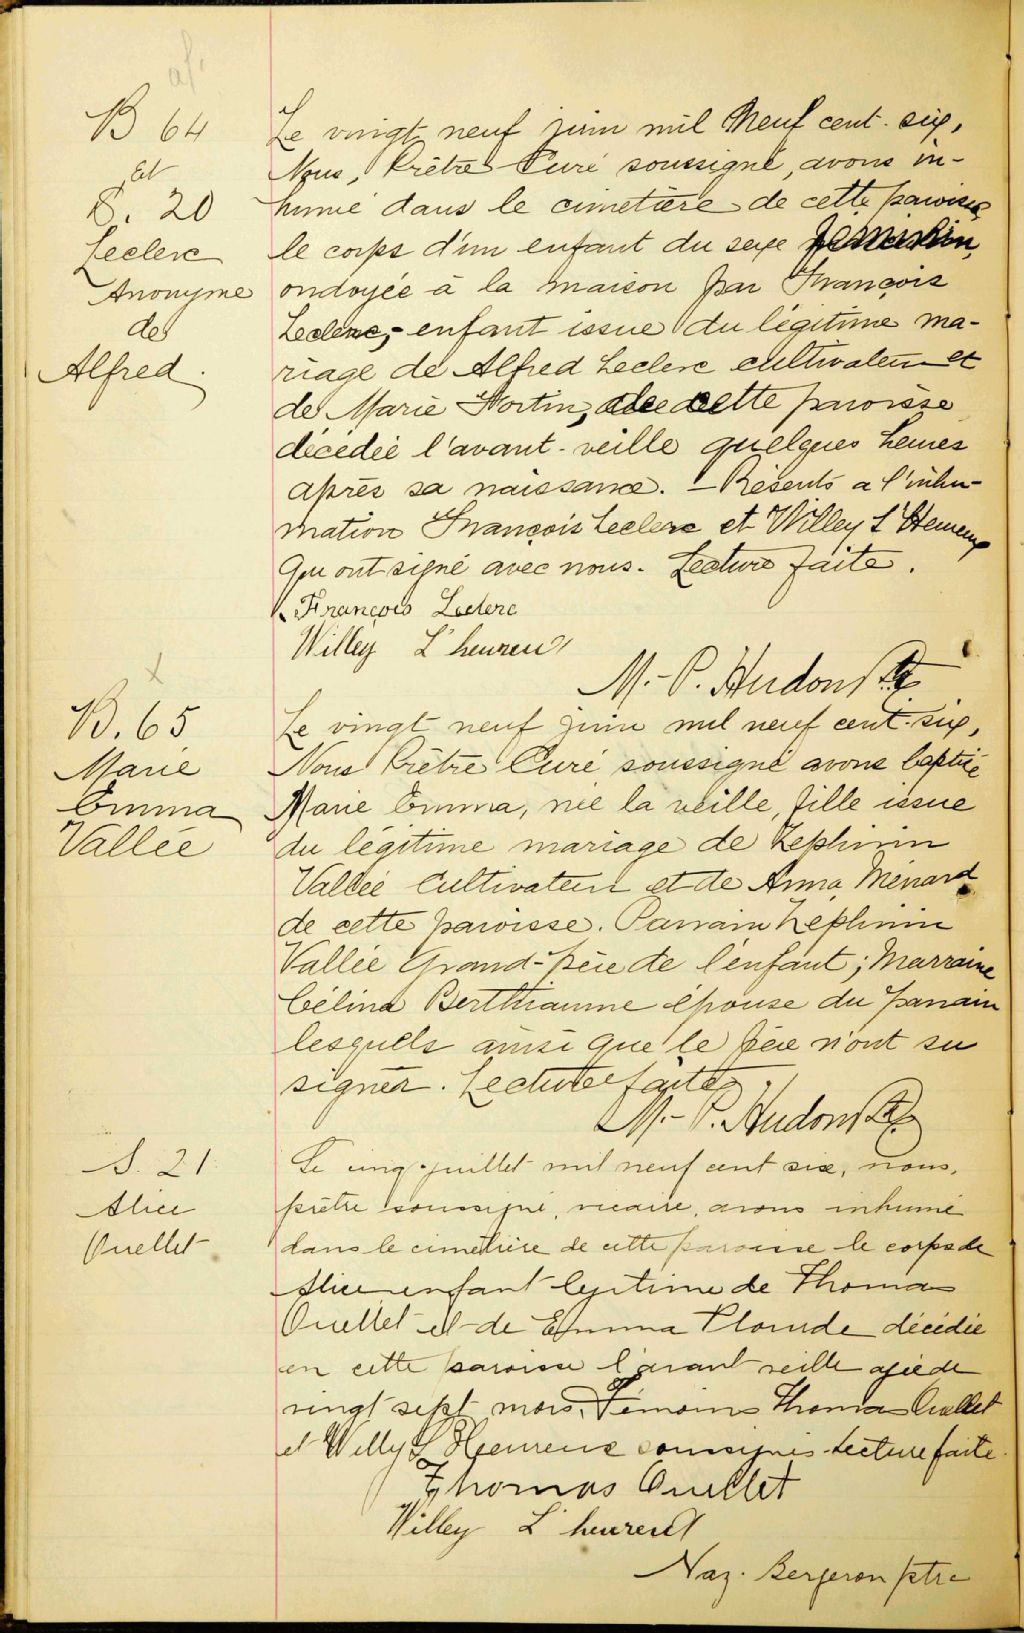 B 64
Et
S. 20
Leclerc
Anonyme
de
Alfred.
Le vingt neuf juin mil Neuf cent six,
Nous, Prêtre Curé soussigné, avons in-
humé dans le cimetière de cette paroisse
le corps d'un enfant du sexe féminin,
ondoyée à la maison par François
Leclerc, - enfant issue du légitime ma-
riage de Alfred Leclerc cultivateur et
de Marie Fortin, de cette paroisse
décédée l'avant-veille quelques heures
après sa naissance. - Présents a l'inhu-
mation François Leclerc et Willey L'Heureux
Qui ont signé avec nous. Lecture faite.
François Leclerc
Willey L'heureux
M.-P. Hudon Ptre
B. 65
Marie
Emma
Vallée
Le vingt neuf juin mil neuf cent-six,
Nous Prêtre Curé soussigné avons baptisé
Marie Emma, née la veille, fille issue
du légitime mariage de Zephirin
Vallée Cultivateur et de Anna Ménard
de cette paroisse. Parrain Zéphirin
Vallée Grand-père de l'enfant; Marraine
Célina Berthiaume épouse du parrain
lesquels ainsi que le père n'ont su
signer. Lecture faite
M.-P. Hudon Ptre
S. 21
Alice
Ouellet
Le cinq juillet mil neuf cent six, nous,
prêtre soussigné, vicaire, avons inhumé
dans le cimetière de cette paroisse le corps de
Alice enfant legitime de Thomas
Ouellet et de Emma Plourde décédée
en cette paroisse l'avant veille agée de
vingt sept mois. Témoins Thomas Ouellet
et Willy L'Heureux soussignés Lecture faite.
Thomas Ouellet
Willey L'heureux
Naz. Bergeron ptre